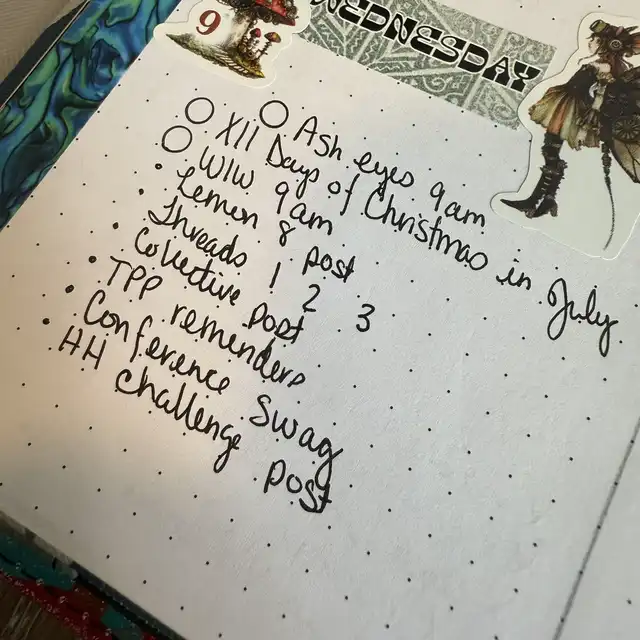 9
WEDNESDAY
Ash eyes 9am
XII Days of Christmas in July
WIW 9am
Lemon 8 post
Threads 1 2 3
Collective post
TPP reminders
Conference Swag
HH challenge post